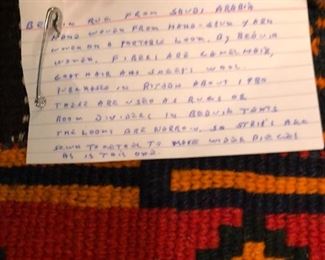 BEDUIN RUG FROM SAUDI ARABIA
HAND WOVEN FROM HAND-SPUN YARN
WOVEN ON A PORTABLE LOOM, BY BEDUIN
WOMEN. FIBERS ARE CAMEL HAIR,
GOAT HAIR AND SHEEP'S WOOL.
PURCHASED IN RIYADH ABOUT 1980
THESE ARE USED AS RUGS OR
ROOM DIVIDERS IN BEDUIN TENTS
THE LOOMS ARE NARROW, SO STRIPS ARE
SEWN TOGETHER TO MAKE WIDER PIECES
AS IS THIS ONE.